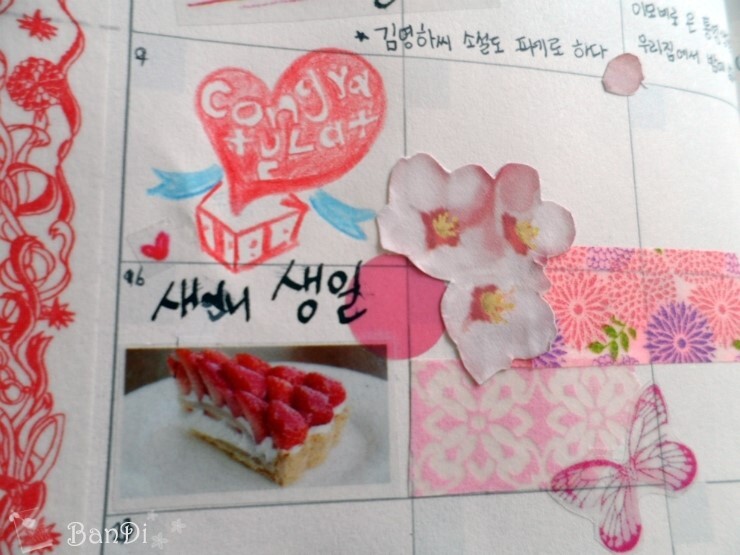 이모비로 은
* 김영하씨 소설도 파기로 하다
우리집에서
9
Congra
tula+
16
새언니 생일
BanDi